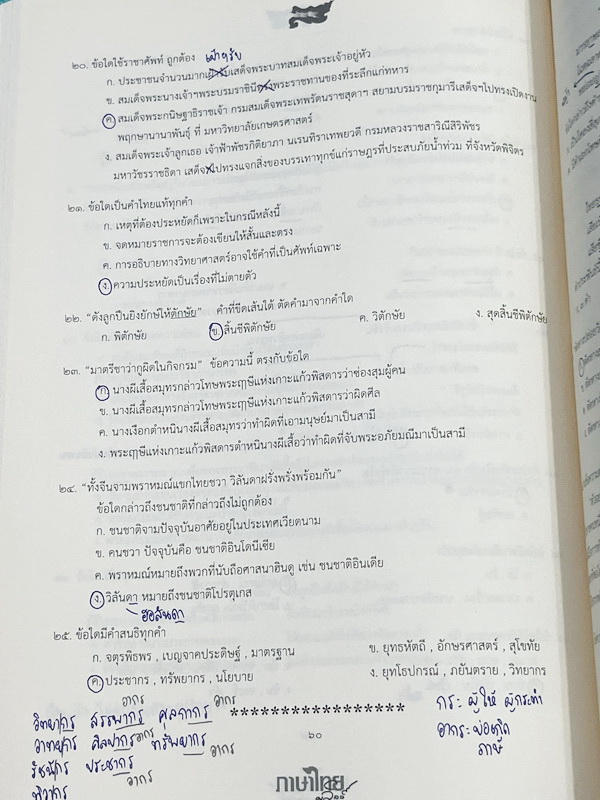 ๒๐. ข้อใดใช้ราชาศัพท์ ถูกต้อง เฝ้าฯรับ
ก. ประชาชนจำนวนมากเฝ้ารับเสด็จพระบาทสมเด็จพระเจ้าอยู่หัว
ข. สมเด็จพระนางเจ้าฯพระบรมราชินีทรงพระราชทานของที่ระลึกแก่ทหาร
ค. สมเด็จพระกนิษฐาธิราชเจ้า กรมสมเด็จพระเทพรัตนราชสุดาฯ สยามบรมราชกุมารีเสด็จฯไปทรงเปิดงาน
พฤกษานานาพันธุ์ ที่ มหาวิทยาลัยเกษตรศาสตร์
ง. สมเด็จพระเจ้าลูกเธอ เจ้าฟ้าพัชรกิติยาภา นเรนทิราเทพยวดี กรมหลวงราชสาริณีสิริพัชร
มหาวัชรราชธิดา เสด็จฯไปทรงแจกสิ่งของบรรเทาทุกข์แก่ราษฎรที่ประสบภัยน้ำท่วม ที่จังหวัดพิจิตร
๒๑. ข้อใดเป็นคำไทยแท้ทุกคำ
ก. เหตุที่ต้องประหยัดก็เพราะในกรณีหลังนี้
ข. จดหมายราชการจะต้องเขียนให้สั้นและตรง
ค. การอธิบายทางวิทยาศาสตร์อาจใช้คำที่เป็นศัพท์เฉพาะ
ง. ความประหยัดเป็นเรื่องที่ไม่ตายตัว
๒๒. "ดังลูกปืนยิงยักษ์ให้ตักษัย" คำที่ขีดเส้นใต้ ตัดคำมาจากคำใด
ก. พิตักษัย ข. สิ้นชีพิตักษัย ค. วิตักษัย ง. สุดสิ้นชีพิตักษัย
๒๓. "มาตรีชาว่ากูผิดในกิจกรม" ข้อความนี้ ตรงกับข้อใด
ก. นางผีเสื้อสมุทรกล่าวโทษพระฤๅษีแห่งเกาะแก้วพิสดารว่าซ่องสุมผู้คน
ข. นางผีเสื้อสมุทรกล่าวโทษพระฤๅษีแห่งเกาะแก้วพิสดารว่าผิดศีล
ค. นางเงือกตำหนินางผีเสื้อสมุทรว่าทำผิดที่เอามนุษย์มาเป็นสามี
ง. พระฤๅษีแห่งเกาะแก้วพิสดารตำหนินางผีเสื้อว่าทำผิดที่จับพระอภัยมณีมาเป็นสามี
๒๔. "ทั้งจีนจามพราหมณ์แขกไทยชวา วิลันดาฝรั่งพรั่งพร้อมกัน"
ข้อใดกล่าวถึงชนชาติที่กล่าวถึงไม่ถูกต้อง
ก. ชนชาติจามปัจจุบันอาศัยอยู่ในประเทศเวียดนาม
ข. คนชวา ปัจจุบันคือ ชนชาติอินโดนีเซีย
ค. พราหมณ์หมายถึงพวกที่นับถือศาสนาฮินดู เช่น ชนชาติอินเดีย
ง. วิลันดา หมายถึงชนชาติโปรตุเกส
ฮอลันดา
๒๕. ข้อใดมีคำสนธิทุกคำ
ก. จตุรพิธพร , เบญจาคประดิษฐ์ , มาตรฐาน ข. ยุทธหัตถี , อักษรศาสตร์ , สุโขทัย
ค. ประชากร , ทรัพยากร , นโยบาย ง. ยุทโธปกรณ์ , ภยันตราย , วิทยากร
อากร อากร
วิทยากร สรรพากร ศุลกากร **************** กร: ผู้ให้ ผู้กระทำ
วาทยกร ศิลปากร อากร ทรัพยากร อากร อากร: บ่อเกิด
รัชนีกร ประชากร ๖๐ ภาษี
ทิวากร อากร
ภาษาไทย